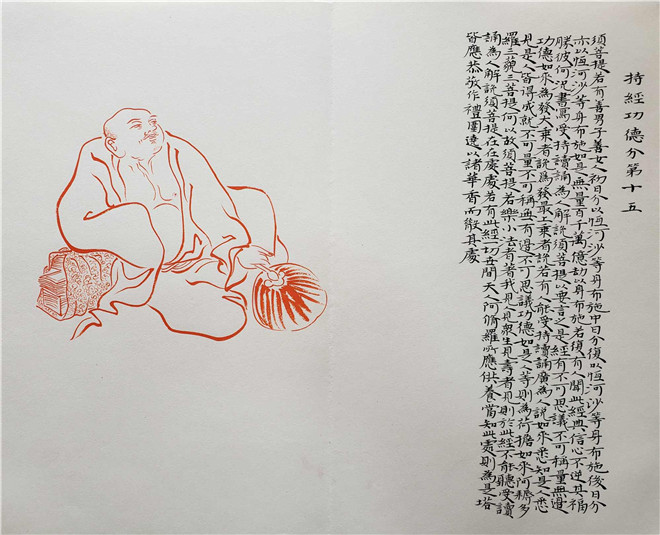 持經功德分第十五
須菩提若有善男子善女人初日分以恆河沙等身布施中日分復以恆河沙等身布施後日分
亦以恆河沙等身布施如是無量百千萬億劫以身布施若復有人聞此經典信心不逆其福
勝彼何況書寫受持讀誦為人解說須菩提以要言之是經有不可思議不可稱量無邊
功德如來為發大乘者說為發最上乘者說若有人能受持讀誦廣為人說如來悉知是人悉
見是人皆得成就不可量不可稱無有邊不可思議功德如是人等則為荷擔如來阿耨多
羅三藐三菩提何以故須菩提若樂小法者著我見人見眾生見壽者見則於此經不能聽受讀
誦為人解說須菩提在在處處若有此經一切世間天人阿修羅所應供養當知此處則為是塔
皆應恭敬作禮圍遶以諸華香而散其處